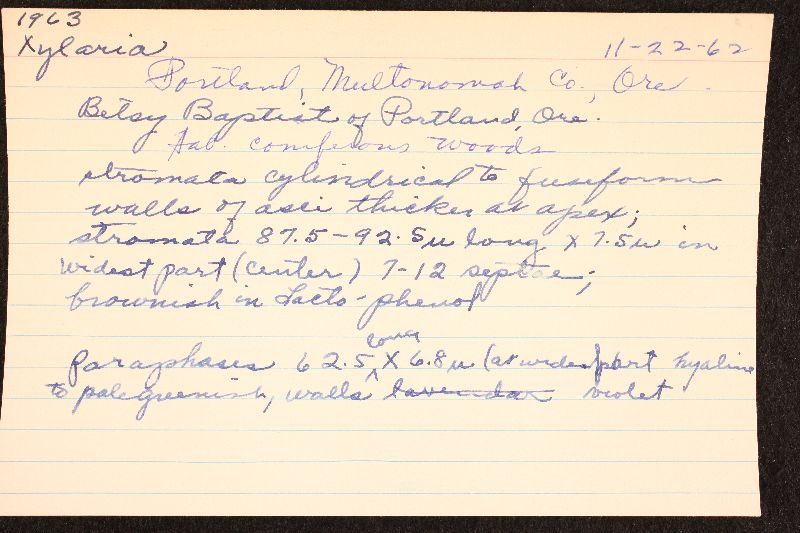 1963
Xylaria 11-22-62
Portland, Multonomah Co., Ore.
Betsy Baptist of Portland, Ore.
Hab. conifeious woods
stromata cylindrical to fuseform
walls of asci thicker at apex;
stromata 87.5-92.5u long x 7.5u in
widest part (center) 7-12 septae;
brownish in Lacto-phenol
paraphases 62.5 x 6.8u (at widest part hyaline
to pale greenish, walls lavendar violet